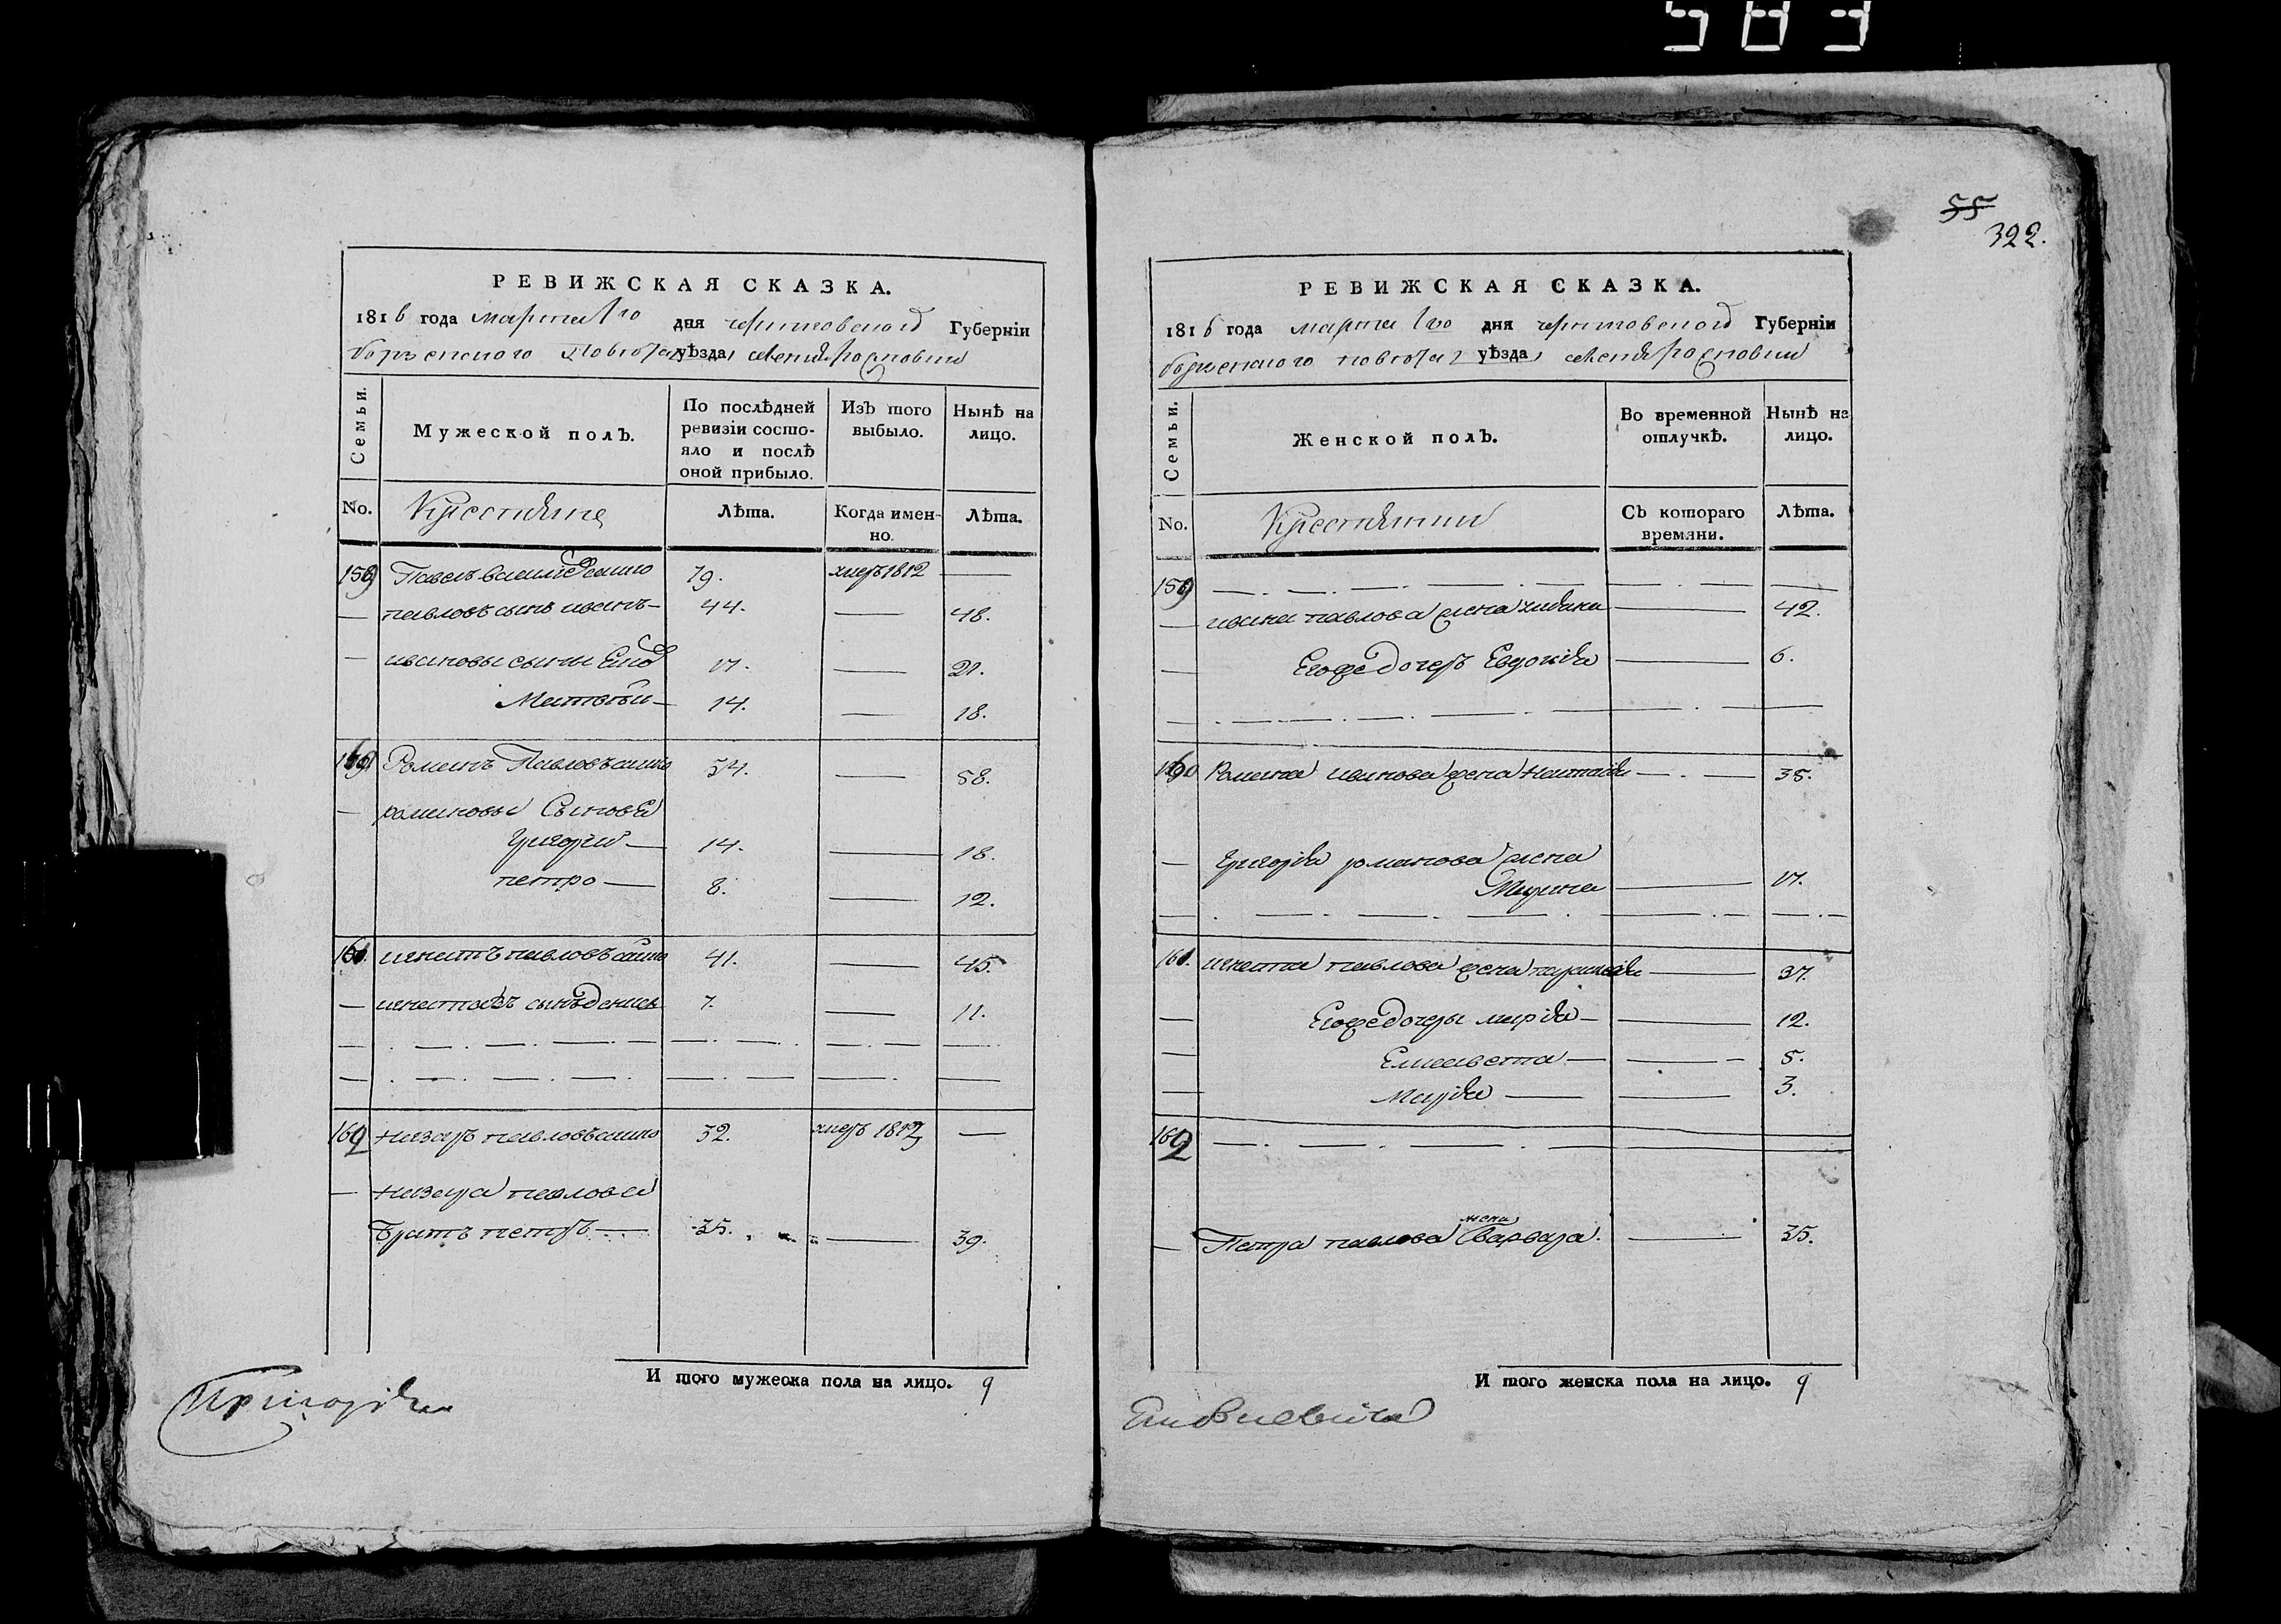 583
55
322.
РЕВИЖСКАЯ СКАЗКА.
1816 года марта 1го дня черниговской Губерніи
повѣта уѣзда, села
Семьи.
Мужеской полъ.
По послѣдней ревизіи состо-
яло и послѣ
оной прибыло.
Изъ того
выбыло.
Нынѣ на
лицо.
No.
Крестьяне
Лѣта.
Когда имен-
но.
Лѣта.
159 Павелъ 79. умеръ 1812 —
— павловъ сынъ иванъ — 44. — 48.
— ивановы сыны 17. — 21.
Матвѣй — 14. — 18.
160 Романъ Павловъ сынъ 54. — 58.
— романовы Сыновья
григорій — 14. — 18.
петро — 8. — 12.
161. игнатъ павловъ сынъ 41. — 45.
— игнатовъ сынъ денисъ 7. — 11.
162 назаръ павловъ сынъ 32. умеръ 1812 —
— назара павлова
братъ петръ — 35. — 39.
И того мужеска пола на лицо. 9
Григорія
РЕВИЖСКАЯ СКАЗКА.
1816 года марта 1го дня черниговской Губерніи
повѣта уѣзда, села
Семьи.
Женской полъ.
Во временной
отлучкѣ.
Нынѣ на
лицо.
No.
Крестьянки
Съ котораго
времяни.
Лѣта.
159
— ивана павлова жена — 42.
— Егоже дочерь Евдокія — 6.
160 Романа иванова жена наталія — 38.
— григорія романова жена
Марина — 17.
161. игната павлова жена параскевія — 37.
— Егоже дочеры марія — — 12.
— Елисавета — — 5.
— Марія — — 3.
162
— Петра павлова жена Варвара. — 35.
И того женска пола на лицо. 9